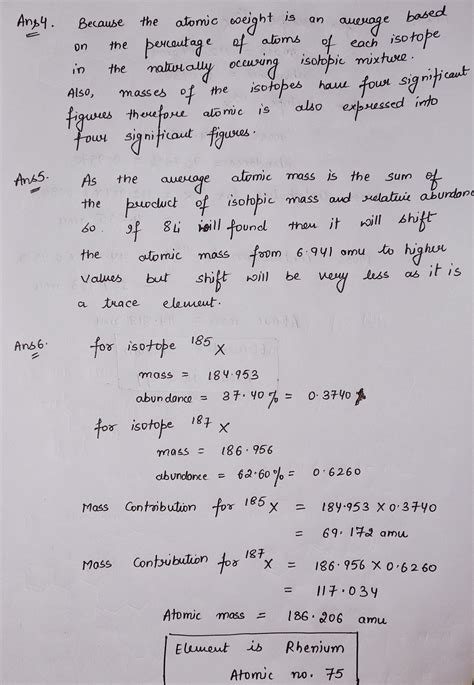 Ans4. Because the atomic weight is an average based
on the percentage of atoms of each isotope
in the naturally occuring isotopic mixture.
Also, masses of the isotopes have four significant
figures therefore atomic is also expressed into
four significant figures.
Ans5. As the average atomic mass is the sum of
the product of isotopic mass and relative abundance
so. If 8Li will found then it will shift
the atomic mass from 6.941 amu to higher
values but shift will be very less as it is
a trace element.
Ans6. for isotope ¹⁸⁵X
mass = 184.953
abundance = 37.40% = 0.3740
for isotope ¹⁸⁷X
mass = 186.956
abundance = 62.60% = 0.6260
Mass Contribution for ¹⁸⁵X = 184.953 X 0.3740
= 69.172 amu
Mass Contribution for ¹⁸⁷X = 186.956 X 0.6260
= 117.034
Atomic mass = 186.206 amu
Element is Rhenium
Atomic no. 75